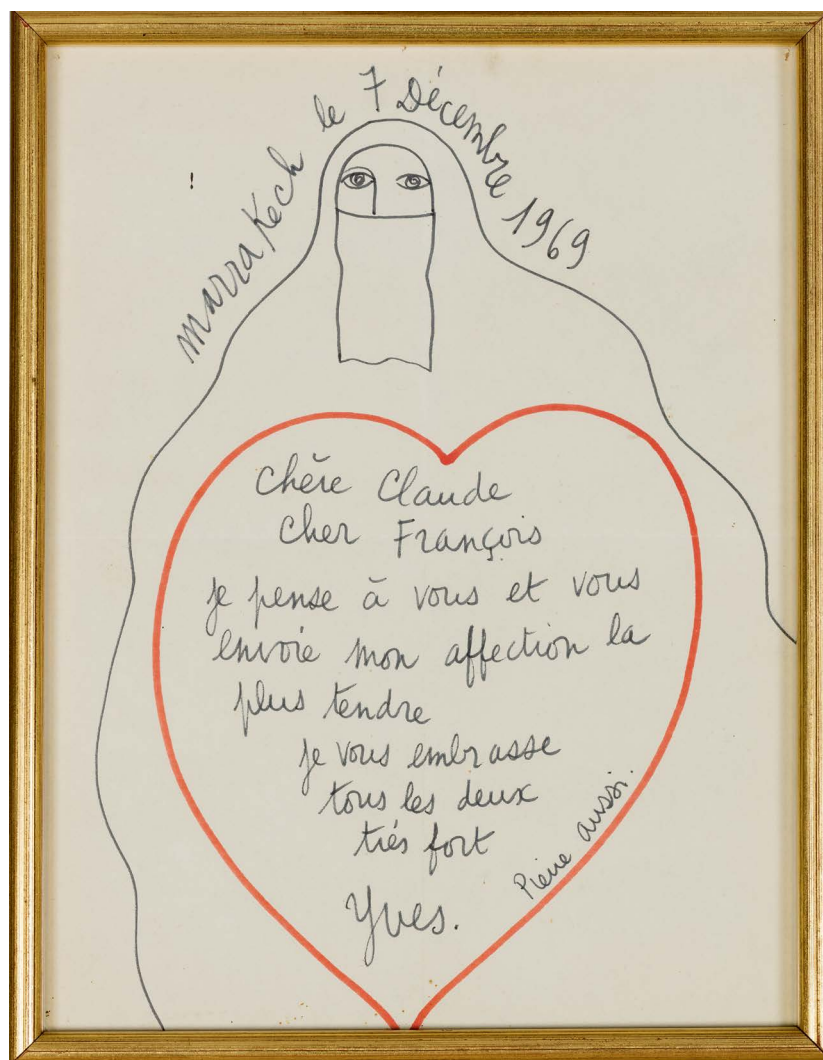 marrakech le 7 Décembre 1969
Chère Claude
Cher François
je pense à vous et vous
envoie mon affection la
plus tendre
je vous embrasse
tous les deux
très fort
Yves.
Pierre aussi.